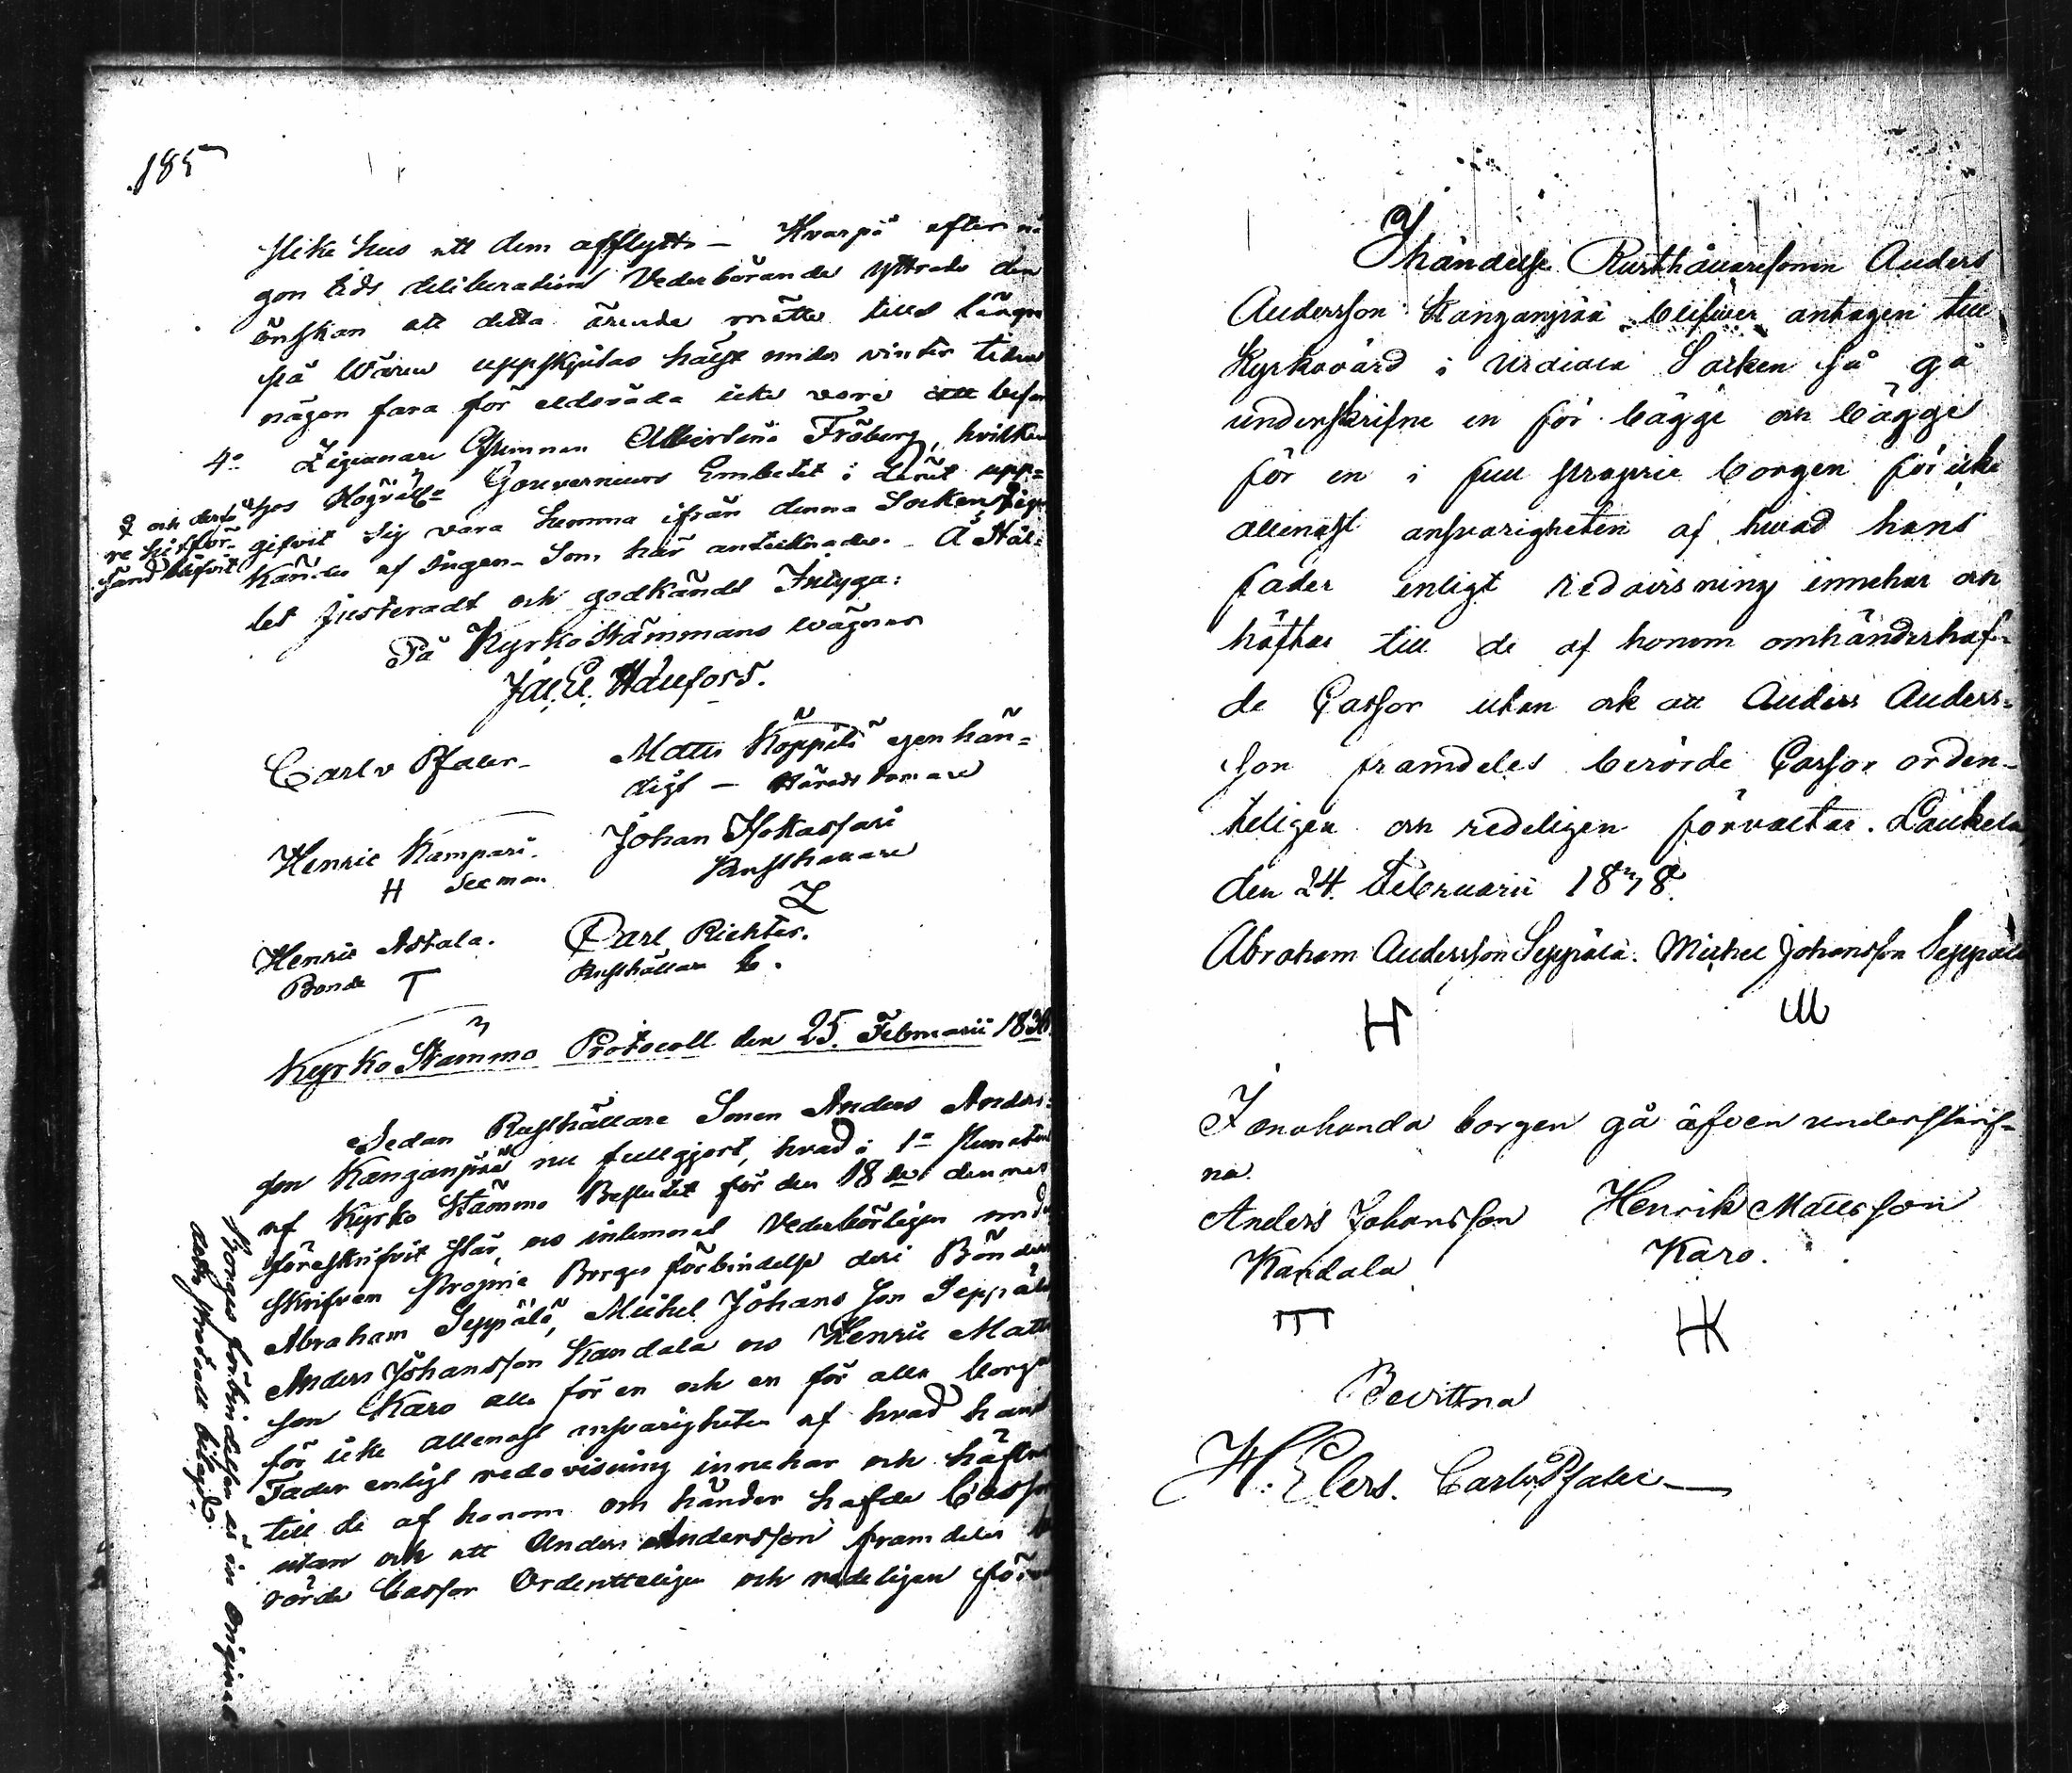 185
slike hus att dem afflytta – Hvarpå efter nå
gon tids deliberation Vederbörande yttrade den
önskan att detta ärende måtte tills längre
på Våren uppskjutas hälst under vinter tiden
någon fara för eldsvåda icke vore att befa
4o Zigenare Qvinnan Albertina Fröberg, hvilken
hos Högvälbe Gouverneurs Embetet i Länet upp=
gifvit sig vara hemma ifrån denna Socken,
och derfö
re hitför-
sänd blifvit
kändes af Ingen – Som här antecknades. – Å Stäl=
let Justeradt och godkändt Intyga:
På Kyrko Stämmans vägnar
Carl v Pfaler – Matts Köppilä egenhän=
digt – Härads domare
Henric Kampari. Johan
H Rusthållare
Henric Astala. Carl Richter.
Bonde T Rusthållare
Kyrko Stämmo Protocoll den 25. Februarii 1838.
Sedan Rusthållare Sonen Anders Anders=
son Kanganpää nu fullgjort, hvad i 1o
af Kyrko Stämmo Beslutet för den 18de dennes
föreskrifvit står, och inlemnat Vederbörligen und
skrifven proprie Borges förbindelse deri Bönder
Abraham Seppälä, Michel Johans Son Seppälä
Anders Johansson Kandala och Henric Matts
son Karo alla för en och en för alla borga
för icke allenast ansvarigheten af hvad hans
Fader enligt redovisning innehar och häftar
till de af honom om händer hafde Cassor
utan ock att Anders Andersson framdeles be
rörde Cassor Ordentteligen och redeligen förva
Borges förbindelsen är in Originale
detta protocoll bilagd.
I händelse Rusthållaresonen Anders
Andersson Kanganpää blifver antagen till
Kyrkovärd i Urdiala Socken så gå
underskrifne en för bägge och bägge
för en i full proprie borgen för icke
allenast ansvarigheten af hvad hans
fader enligt redovisning innehar och
häftar till de af honom omhänderhaf-
de Cassor utan ock att Anders Anders=
son framdeles berörde Cassor orden-
teligen och redeligen förvaltar. Laukela
den 24. Februarii 1838.
Abraham Andersson Seppälä. Michel Johansson Seppälä
H M
I enahanda borgen gå äfven underskrif-
na.
Anders Johansson Henrik Mattsson
Kandala Karo.
HK
Bevittna
H. Elers. Carl v Pfaler –